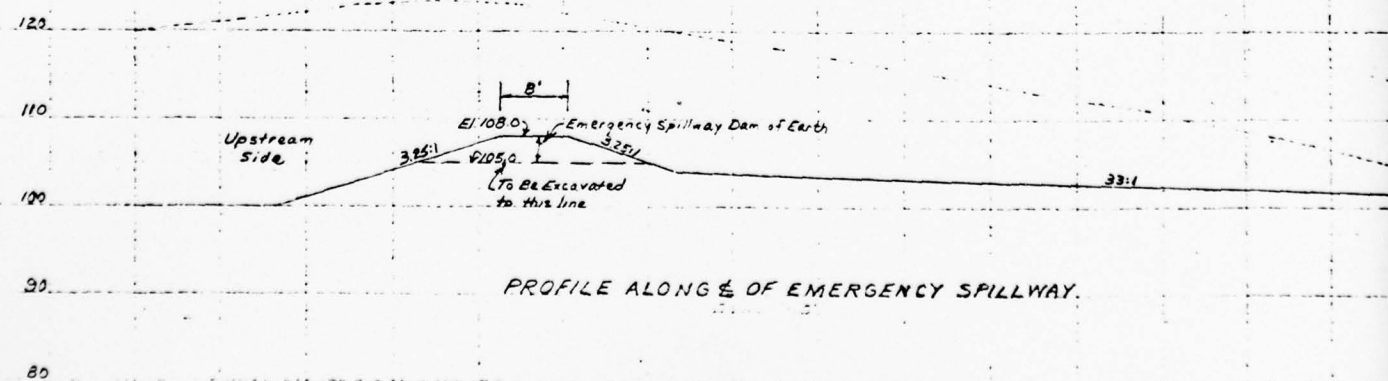 120
8'
110
El 108.0
Emergency Spillway Dam of Earth
Upstream
Side
3.25:1
3.25:1
El 105.0
To Be Excavated
to this line
33:1
100
90
PROFILE ALONG ℄ OF EMERGENCY SPILLWAY.
80